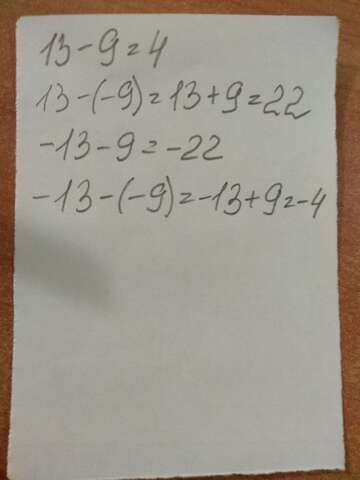 13-9=4
13-(-9)=13+9=22
-13-9=-22
-13-(-9)=-13+9=-4